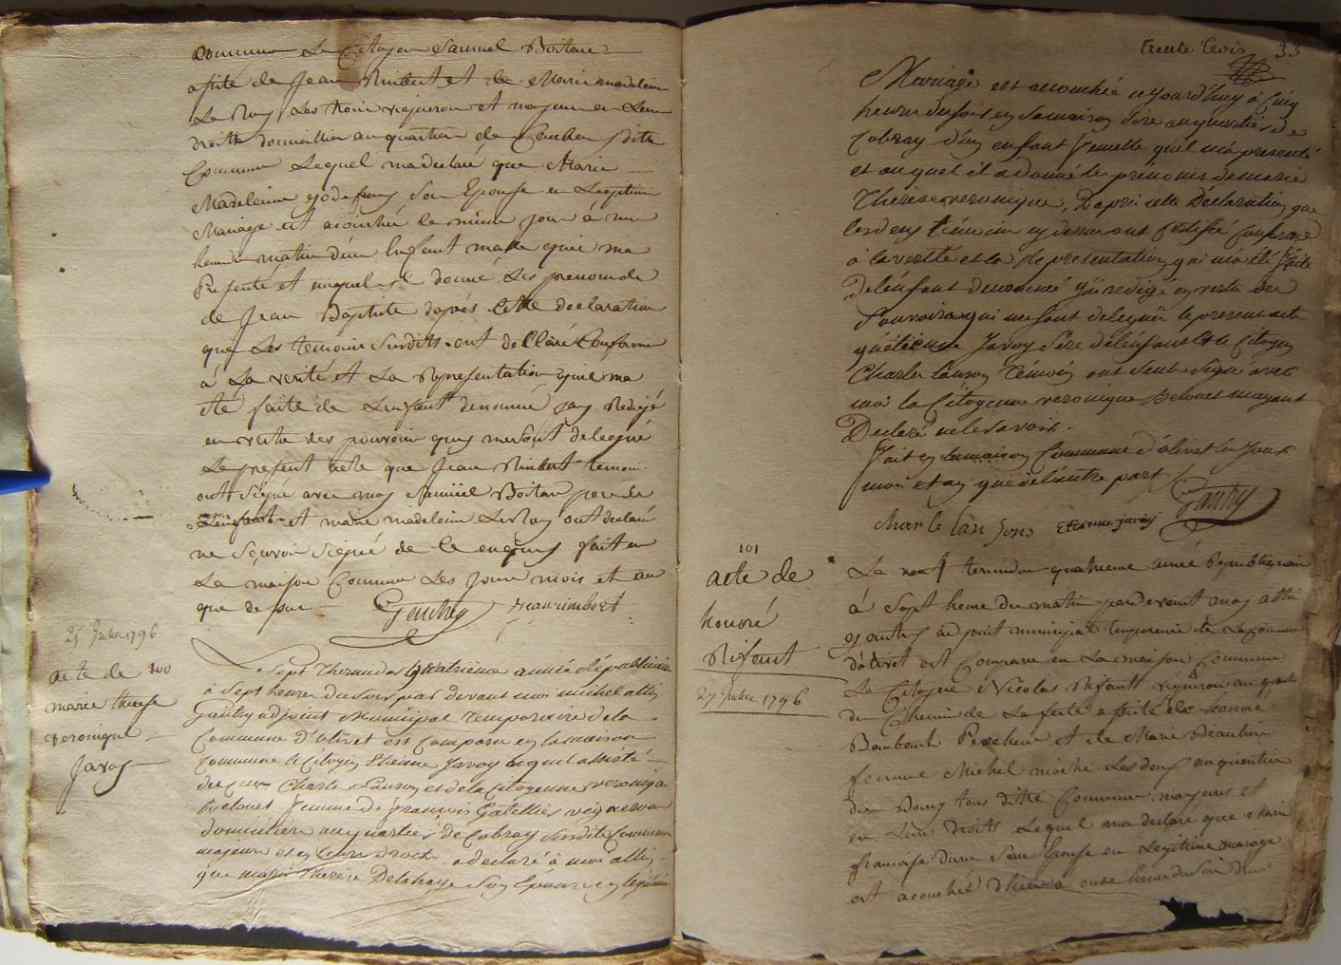 commune Le Citoyen Samuel Boitard
assité de Jean Rimbert et de Marie madelein
Le Roy Les trois vigneron et majeur en Leur
droits domicillier au quartier de Couasnon ditte
Commune Lequel ma declaré que Marie
Madeleine godefroy Son Epouse en Legitime
Mariage est acouché le même jour à une
heure matin d'un Enfant male quil ma
Presenté et auquel il donné Les prenom de
de Jean Baptiste dapres cette declaration
que Les temoins Susdits ont declaré Conforme
à La verité et La Representation quil ma
été faite de Lenfant denommé jay Redigé
en vertu des pouvoir quy me sont delegué
Le present acte que Jean Rimbert temoin
ont Signé avec moy Samuel Boitar pere de
Lenfant et marie madelein LeRoy ont declaré
ne Sçavoir Signé de ce enquis fait en
La maison Commune Les Jour mois et an
que de pare Gaudry jean rimbert
25 Juillet 1796
acte de 100
marie therese
veronique
Javoy
Le Sept Thermidor Quatrieme année républicaine
à Sept heures du soir par devant moi michel
Gaudry adjoint Municipal temporaire de la
Commune d'Olivet est Comparu en la maison
Commune le Citoyen Etienne Javoy lequel assisté
du Charle Lanson et de la Citoyenne veronique
Belouet femme de françois Gabelliés vigneron
domicilier au quartier de Cobray Susdite Commune
majeurs et en leurs droits a declaré à moi
que marie Therese Delahaye Son Epouse en légitime
trente trois 33
Mariage est accouchée aujourd'huy à Cinq
heures du soir en Sa maison Size au quartier de
Cobray d'un enfant femelle qu'il m'a presenté
et auquel il a donné les prénoms de marie
Therese veronique, D'apres cette Déclaration que
les deux témoins cy dessus ont Certifié conforme
à la verité et la Representation qui m'a été faite
De l'enfant denommé j'ai redigé en vertu des
Pouvoirs qui me sont delegués le present acte
qu'étienne Javoy Père de l'enfant et le Citoyen
Charles Lanson Témoin ont Seuls Signé avec
moi la Citoyenne veronique Belouet mayant
Declaré ne le savoir.
fait en la maison Commune d'olivet les Jour
mois et an que de l'autre part
Gaudry
Charle Lan Sons Etienne javoy
101
acte de
honoré
Rifault
27 Juillet 1796
Le neuf termidor quatrieme année Republiquaine
à Sept heure du matin pardevant moy
gaudry adjoint municipal temporaire de La Commune
d'olivet est Comparu en La maison Commune
Le Citoyen Nicolas Rifault vigneron au quartier
du Chemin de La ferté assité de honoré
Bombault Pecheur et de Marie Beaulin
femme Michel Les deux au quartier
du Bourg tous ditte Commune majeurs et
en Leur droits Lequel ma declaré que marie
françoise Son Epouse en Legitime mariage
est acouchée d'hier a onze heure du Soir d'un